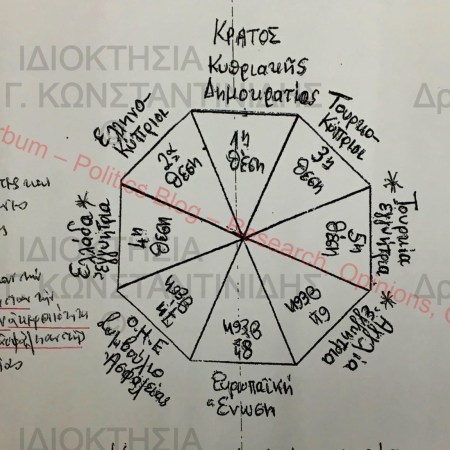 ΚΡΑΤΟΣ
Κυπριακής
Δημοκρατίας
ΙΔΙΟΚΤΗΣΙΑ
Γ. ΚΩΝΣΤΑΝΤΙΝΙΔΗΣ
Δρ
Ελληνο-
Κύπριοι
2α
Θέση
1η
Θέση
Τουρκο-
Κύπριοι
3η
Θέση
rbum – Politics Blog – Research, Opinions,
* Ελλάδα
Εγγυήτρια
4η
Θέση
* Τουρκία
Εγγυήτρια
5η
Θέση
* Αγγλία
Εγγυήτρια
6η
Θέση
ΙΔΙΟΚΤΗΣΙΑ
Γ. ΚΩΝΣΤΑΝΤΙΝΙΔΗΣ
Δρ
Ο.Η.Ε
Συμβούλιο
Ασφαλείας
7η
Θέση
8η
Θέση
Ευρωπαϊκή
Ένωση
ΙΔΙΟΚΤΗΣΙΑ